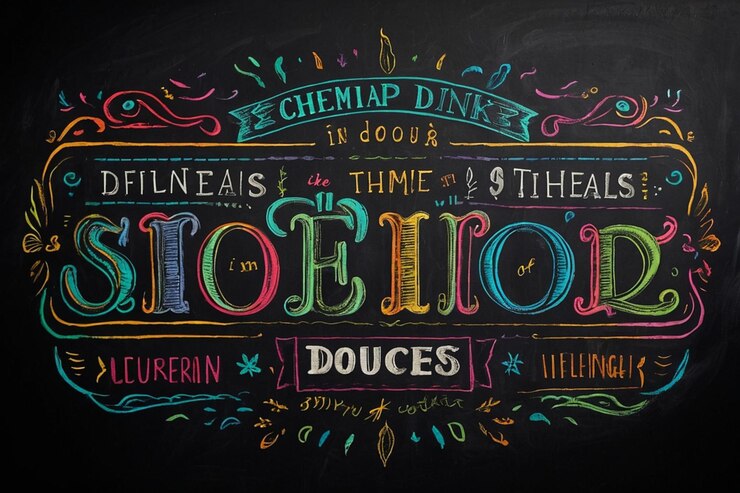 CHEMIAP DINK
in doour
DFILNEAIS ike THMIE STIHEALS
SIOEIIOR
im of
LCURERIN DOUCES IIFLEINGHI